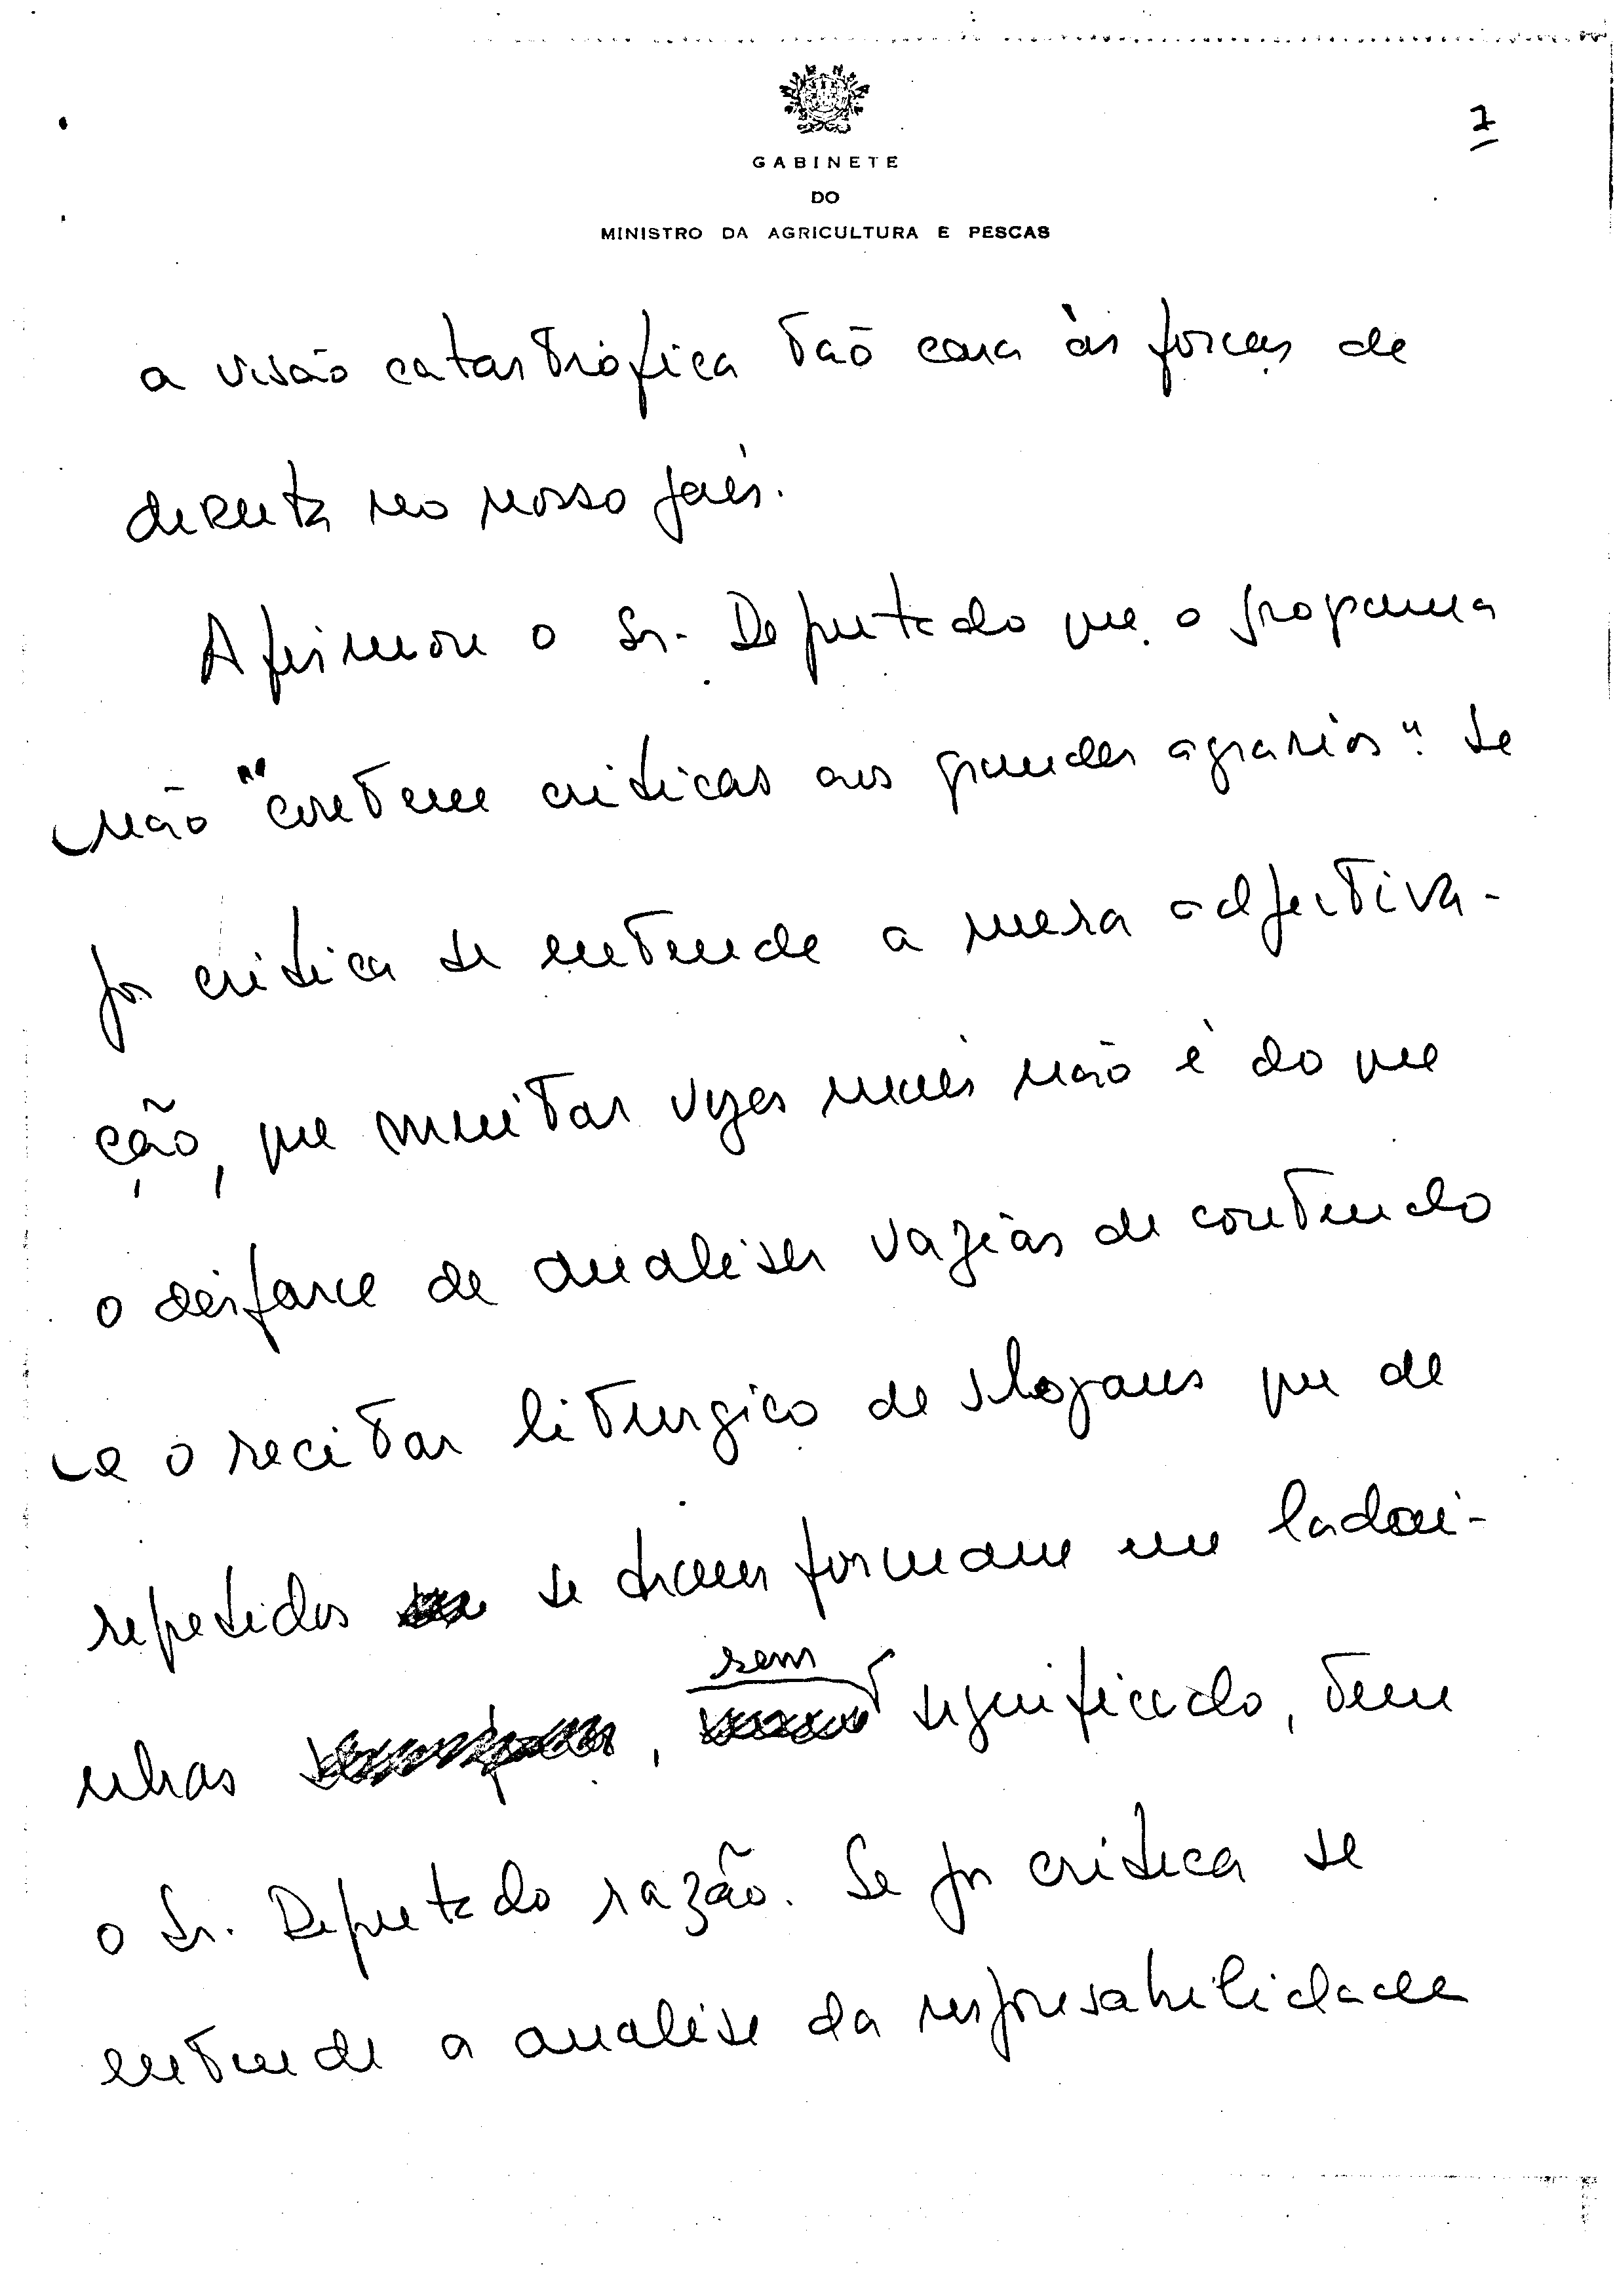 7
GABINETE
DO
MINISTRO DA AGRICULTURA E PESCAS
a visão catastrófica tão cara às forças de
direita no nosso país.
Afirmou o Sr. Deputado que o programa
não "contem criticas aos grandes agrarios". Se
por critica se entende a mera adjectiva-
ção, que muitas vezes mais não é do que
o disfarce de analises vazias de conteudo
e o recitar liturgico de slogans que de
repetidos se transformam em ladai-
nhas , sem significado, tem
o Sr. Deputado razão. Se por critica se
entende a analise da responsabilidade